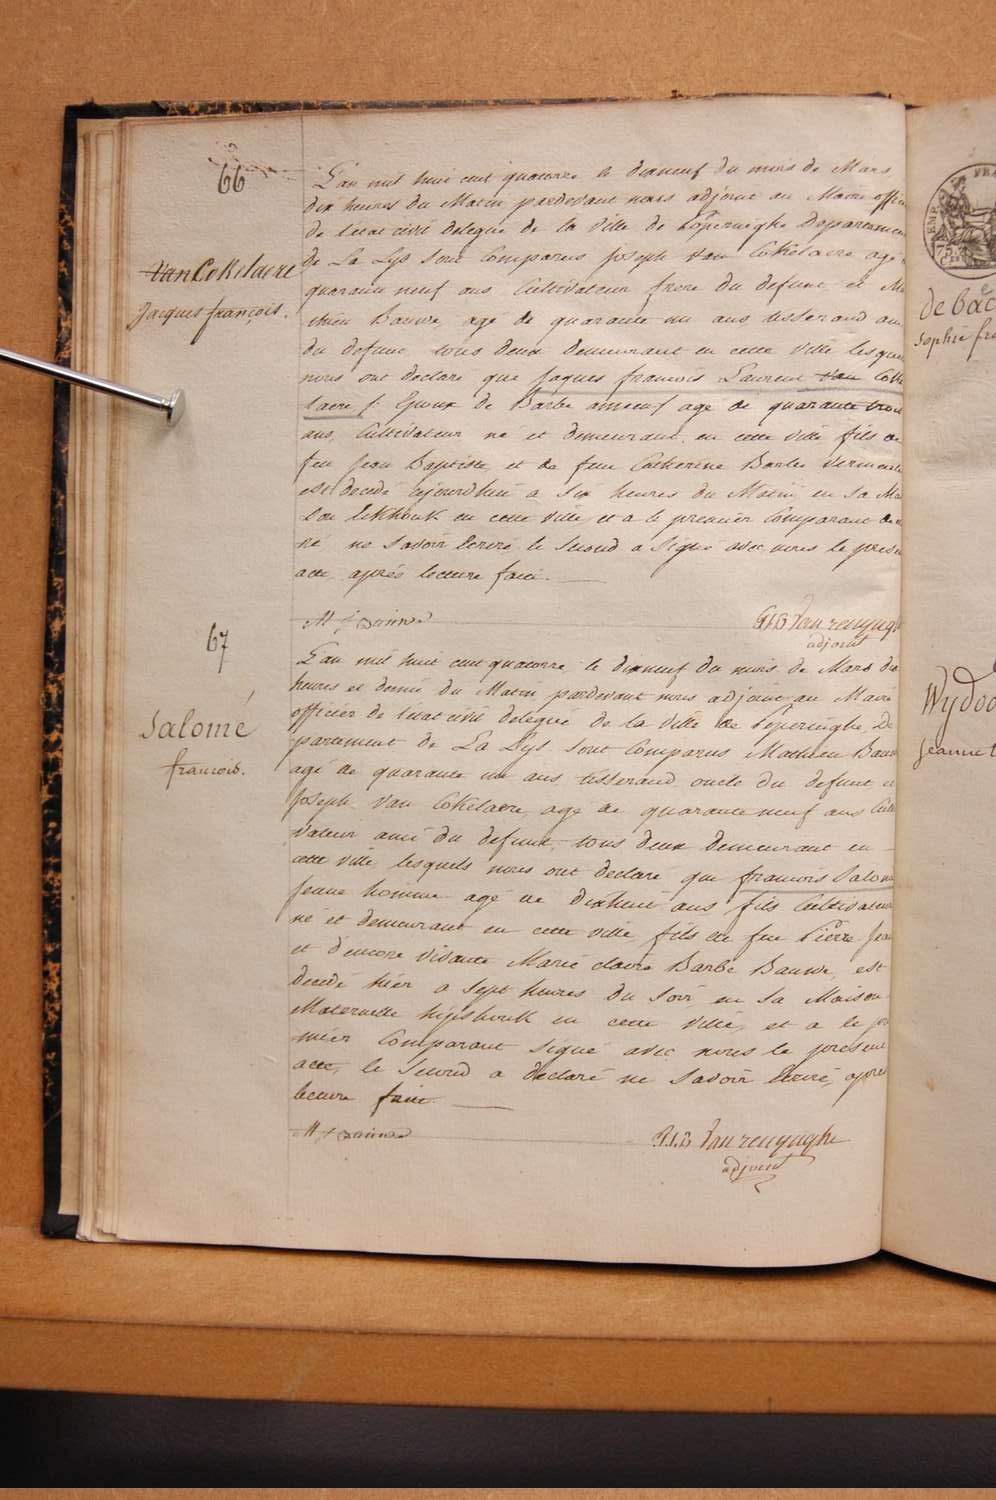 66
Van Cokelaere
Jacques françois.
L'an mil huit cent quatorze le dixneuf du mois de Mars,
dix heures du Matin pardevant nous adjoint au Maire offici
de l'etat civil delegué de la ville de Poperinghe Departemen
de La Lys sont Comparus Joseph van Cokelaere agé
quarante neuf ans Cultivateur frere du defunt, et Ma
thieu Bauwe, agé de quarante un ans tisserand ami
du defunt, tous deux demeurant en cette ville lesquels
nous ont declaré que Jaques francois Laurent van Coke
laere Epoux de Barbe ameuf agé de quarante trois
ans, Cultivateur né et demeurant en cette ville fils de
feu Jean Baptiste, et de feu Catherine Barbe
est decedé ajourdhui a six heures du Matin, en sa Mai
en cette ville, et a le premier Comparant decla
ré ne savoir Ecrire, le second a Signé avec nous le prese
acte, après lecture faite.
M J Bauwe
Van renynghe
adjoint
67
Salomé
francois.
L'an mil huit cent quatorze le dixneuf du mois de Mars dix
heures et demie du Matin pardevant nous adjoint au Maire
officier de l'etat civil delegué de la ville de Poperinghe, De
partement de La Lys sont Comparus Mathieu Bauwe
agé de quarante un ans tisserand oncle du defunt et
Joseph Van Cokelaere, agé de quarante neuf ans Culti
vateur ami du defunt, tous deux demeurant en
cette ville, lesquels nous ont declaré que francois Salomé
Jeune homme agé de dixhuit ans fils Cultivateur
né et demeurant en cette ville fils de feu Pierre Jean
et d'encore vivante Marie claire Barbe Bauwe, est
decedé hier a sept heures du soir en sa Maison
Maternelle en cette ville, et a le pre
mier Comparant signé avec nous le présent
acte, le second a déclaré ne savoir Ecrire, après
lecture faite.
M J Bauwe
Van renynghe
adjoint
de bac
Sophie fr
Wydoo
Jeanne t